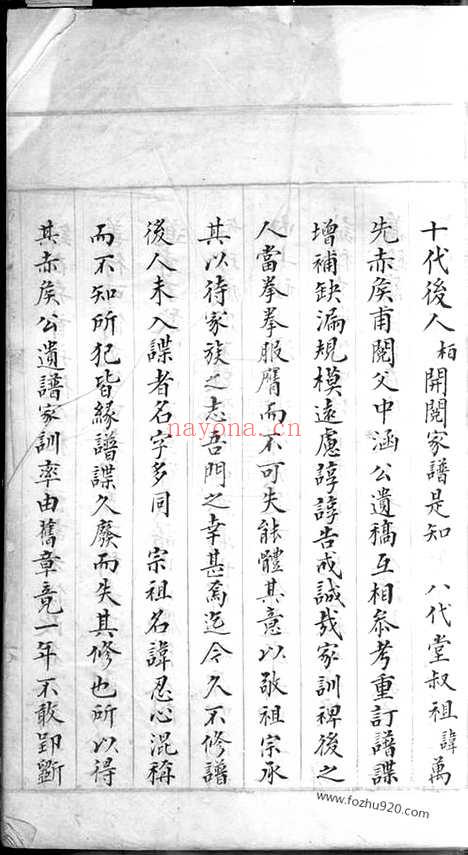 十代後人柏開閱家譜是知 八代堂叔祖諱萬
先赤矦甫閱父中涵公遺稿互相叅考重訂譜諜
增補缺漏規模遠慮諄諄告戒誠哉家訓裨後之
人當拳拳服膺而不可失能體其意以敬祖宗承
其以待家族之志吾門之幸甚焉迄今久不修譜
後人未入諜者名字多同 宗祖名諱忍心混稱
而不知所犯皆緣譜諜久廢而失其修也所以得
其赤矦公遺譜家訓率由舊章竟一年不敢卽斷
nayona.cn
www.fozhu920.com